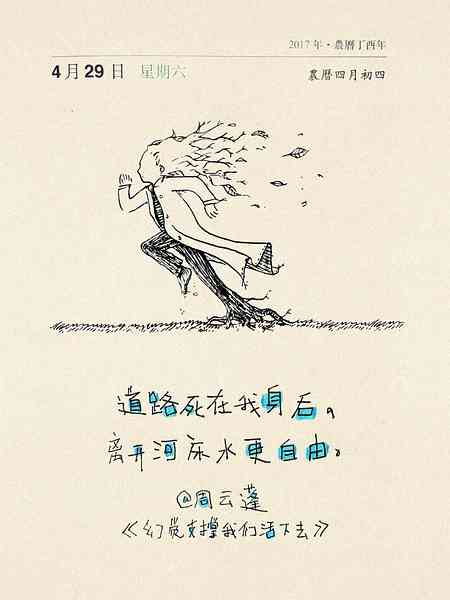 2017年·農曆丁酉年
4月29日 星期六 農曆四月初四
道路死在我身后。
离开河床水更自由。
@周云蓬
《幻觉支撑我们活下去》